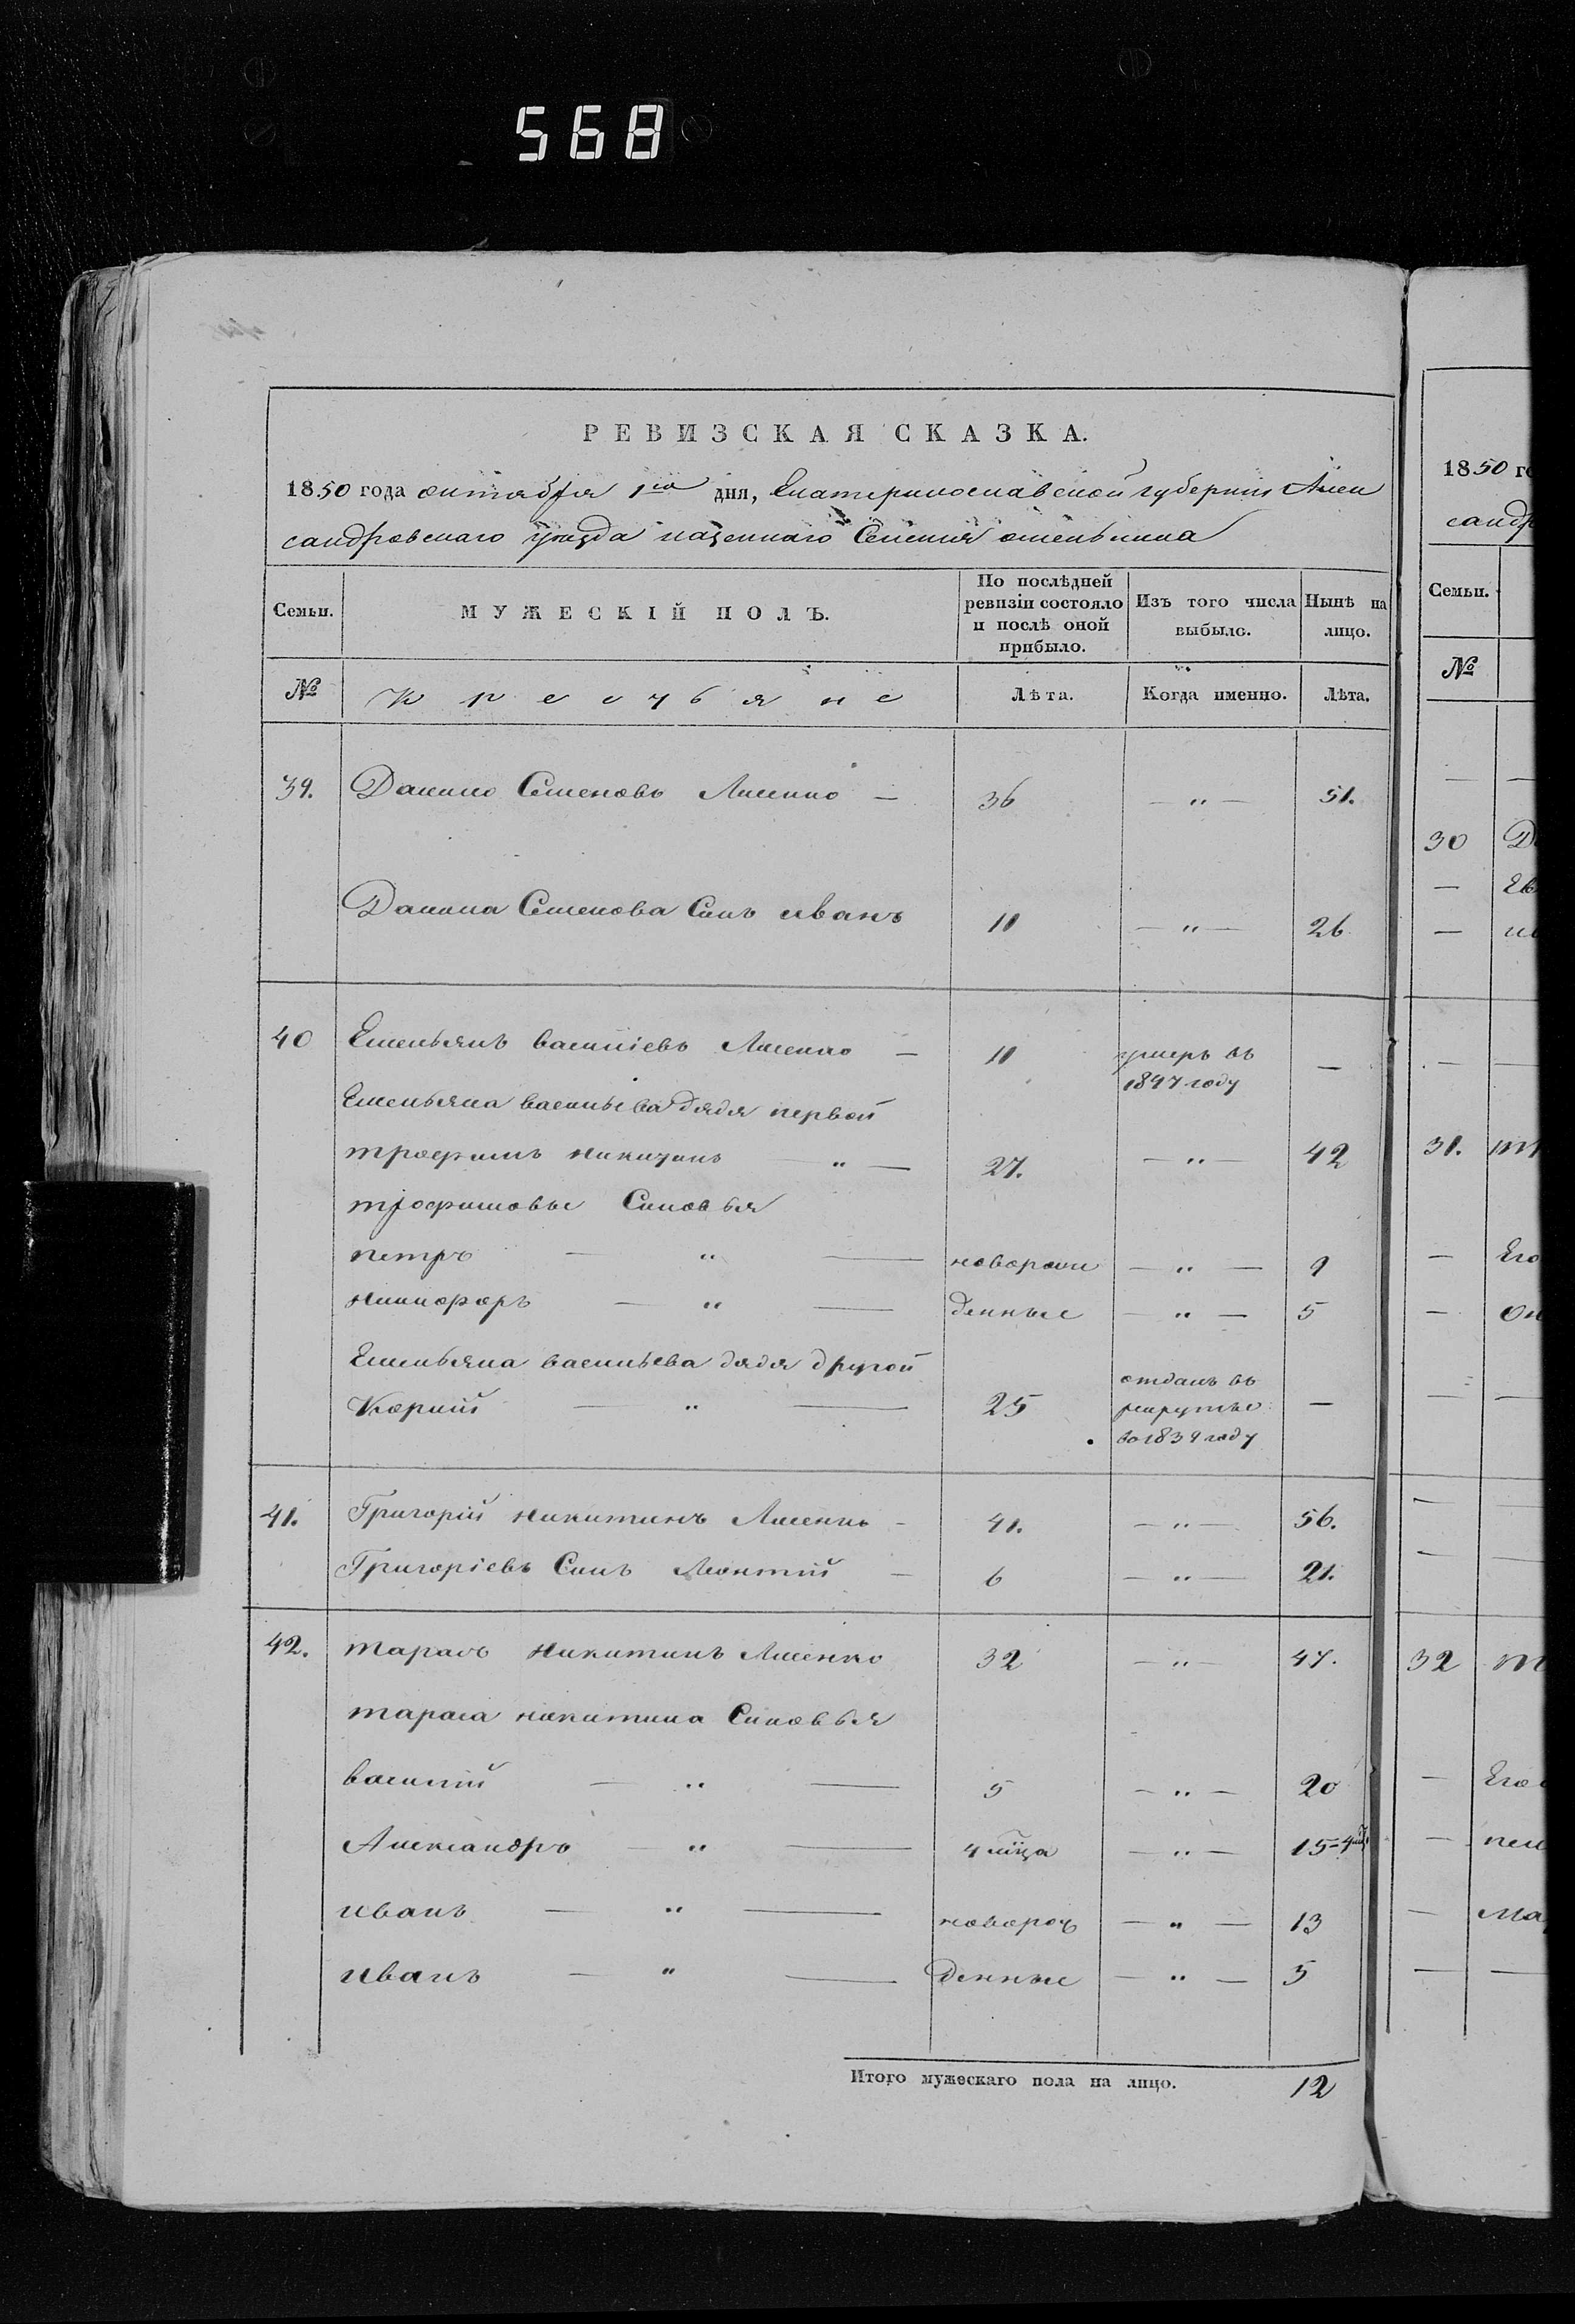 568
РЕВИЗСКАЯ СКАЗКА.
1850 года октября 1го дня, Екатеринославской губернии Алек
сандровскаго уѣзда казеннаго Селения
Семьи. МУЖЕСКІЙ ПОЛЪ. По послѣдней ревизіи состояло и послѣ оной прибыло. Изъ того числа выбыло. Нынѣ на лицо.
№ Крестьяне Лѣта. Когда именно. Лѣта.
39. Данило Семеновъ Лисенко — 36 — " — 51.
Данила Семенова Синъ иванъ 11 — " — 26
40 Емельянъ василіевъ Лисенко — 11 умеръ въ 1847 году —
Емельяна васильева дядя первой
трофимъ никитинъ " — 27. — " — 42
трофимовы Синовья
петръ — " — новорож — " — 9
никифоръ — " — денные — " — 5
Емельяна васильева дядя другой
Корній — " — 25 отданъ въ рекруты во 1839 году —
41. Григорій никитинъ Лисенко — 41. — " — 56.
Григоріевъ Синъ Леонтій — 6 — " — 21.
42. тарасъ никитинъ Лисенко 32 — " — 47.
тараса никитина Синовья
василій — " — 5 — " — 20
Александръ — " — 4 мца — " — 15-4м.
иванъ — " — новорож — " — 13
иванъ — " — денные — " — 5
Итого мужескаго пола на лицо. 12
1850 го
сандр
Семьи.
№
30 Д
— Ев
— ив
31. т
— Его
— Он
32 т
— Его
—
— ма